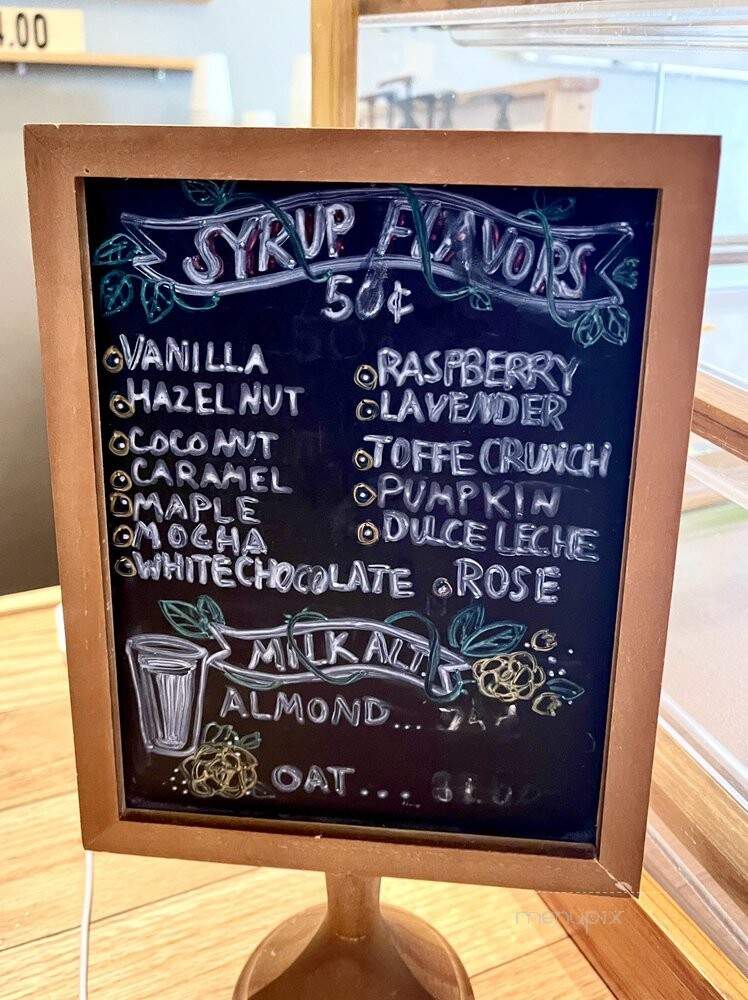 .00
SYRUP FLAVORS
50¢
VANILLA
HAZELNUT
COCONUT
CARAMEL
MAPLE
MOCHA
WHITE CHOCOLATE
RASPBERRY
LAVENDER
TOFFE CRUNCH
PUMPKIN
DULCE LECHE
ROSE
MILK ALT
ALMOND...
OAT...
menupix